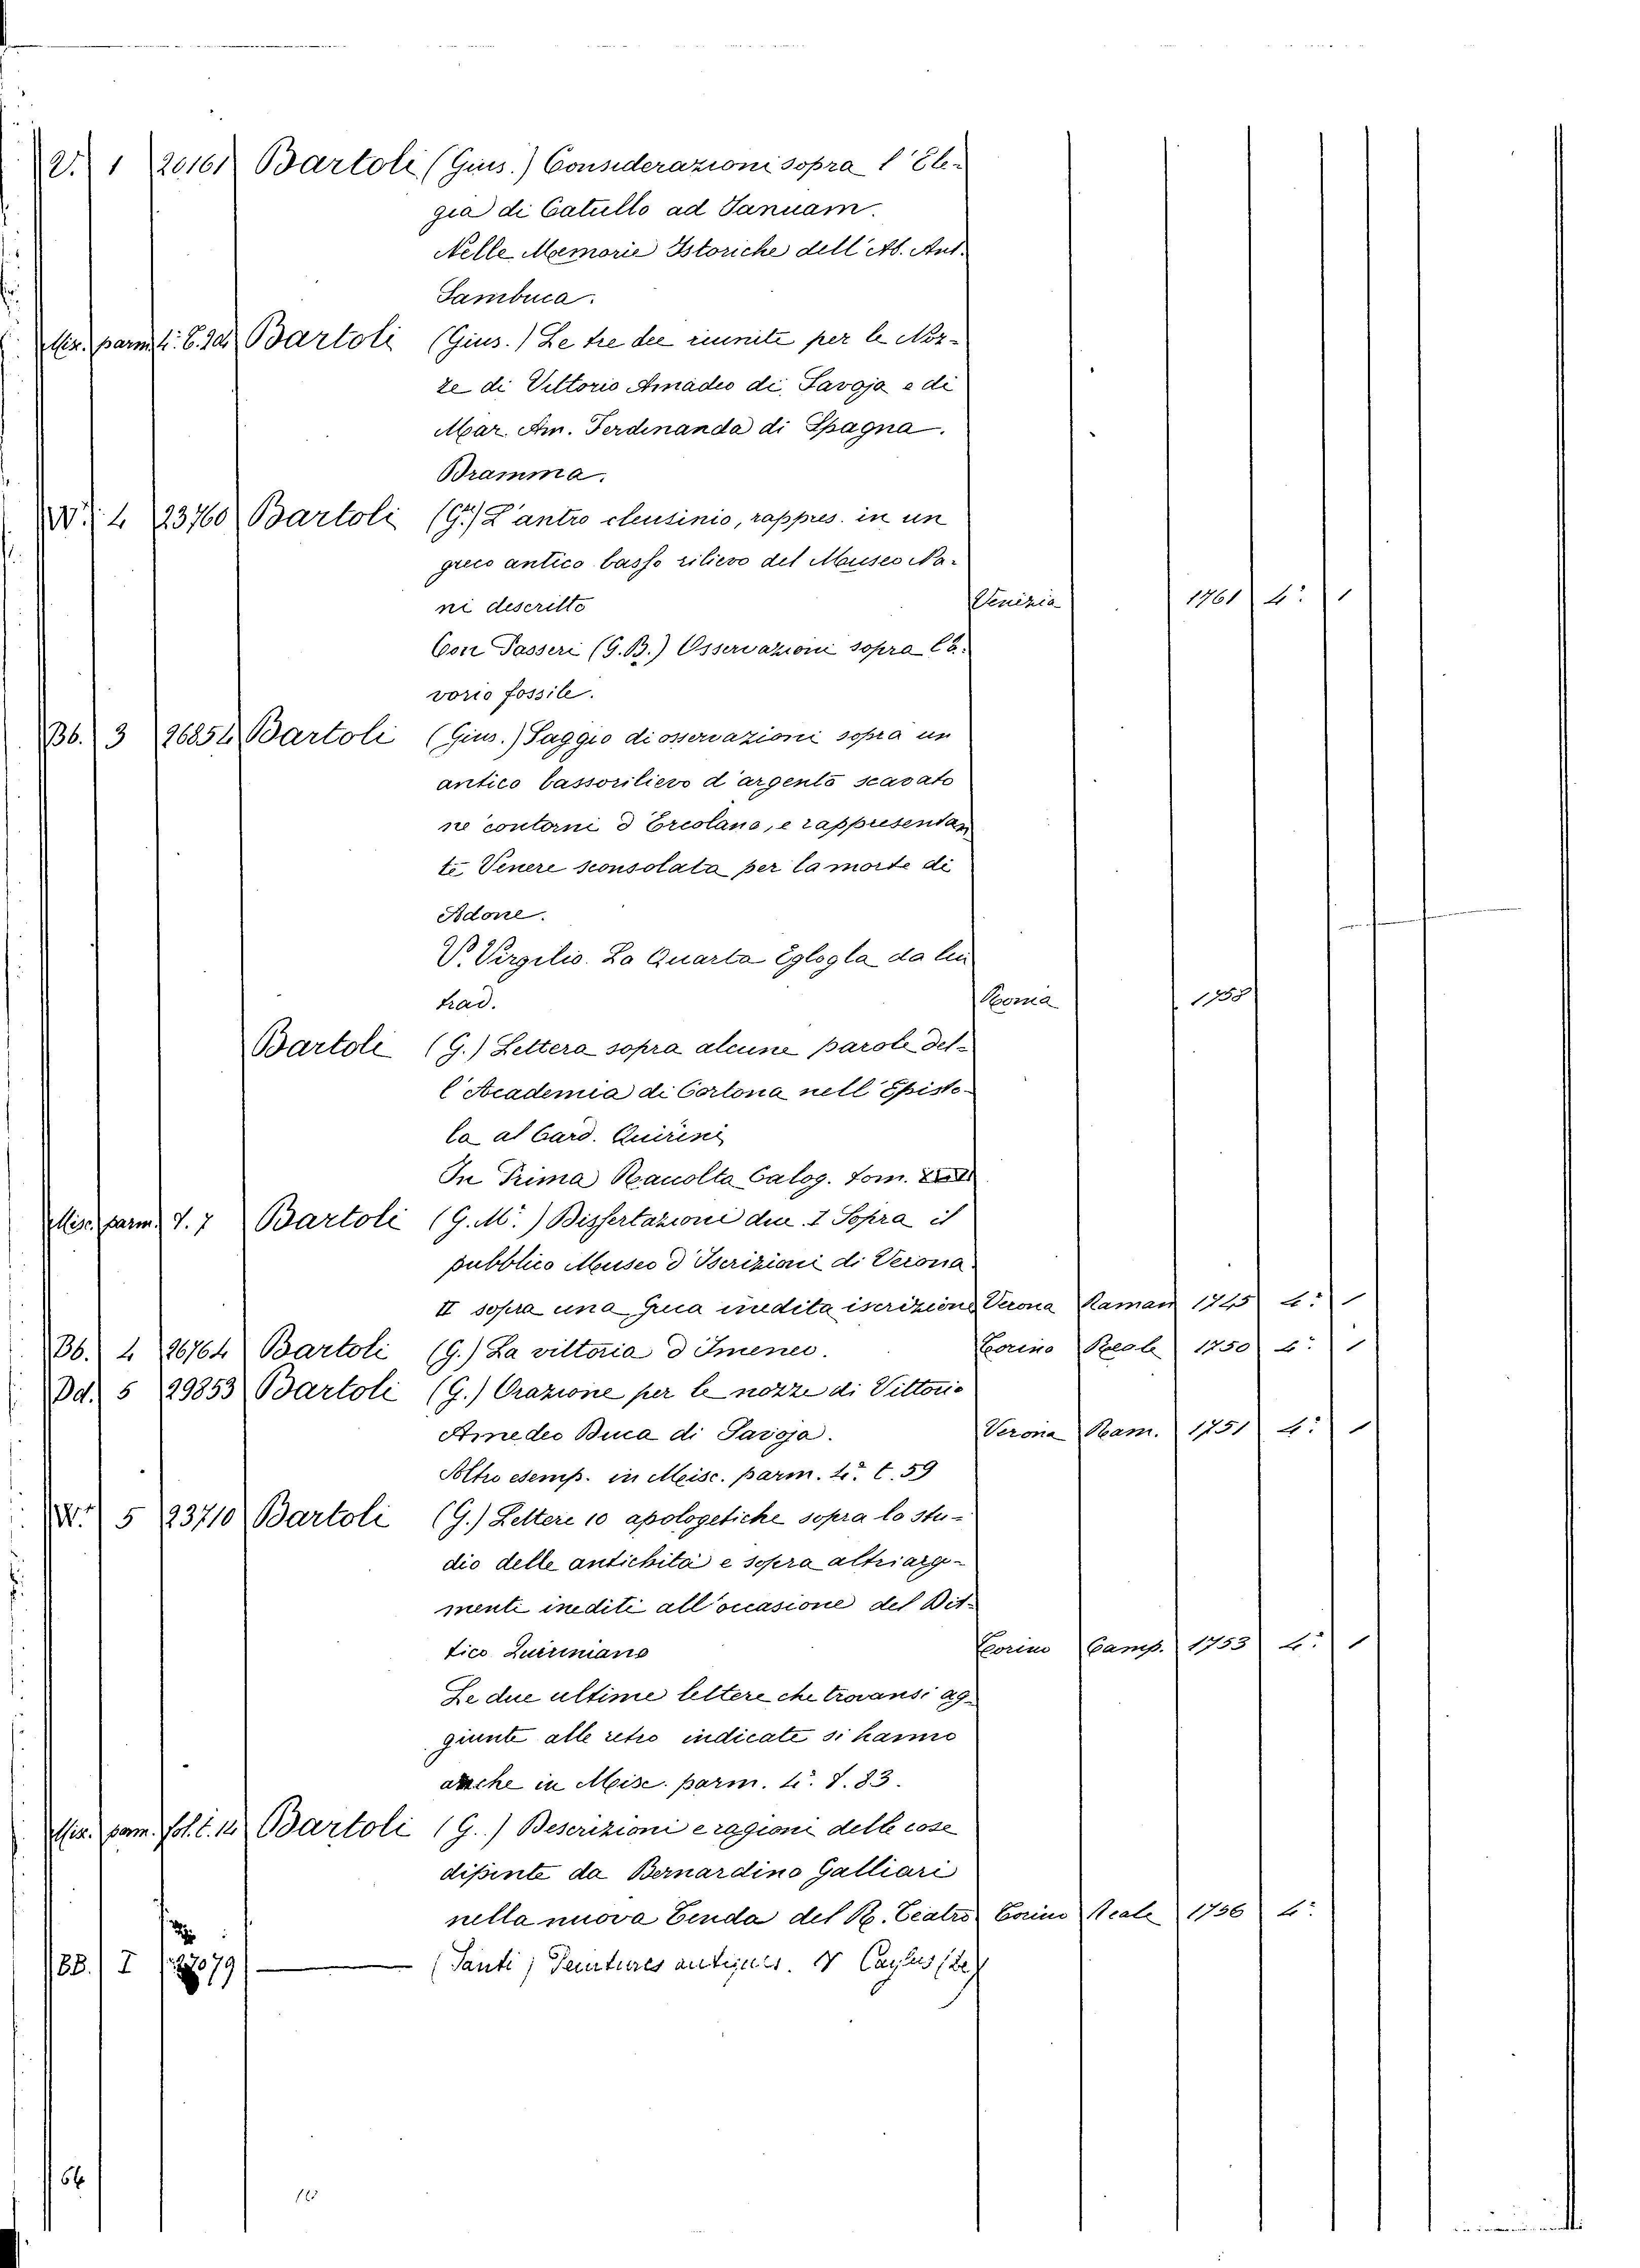 V. 1 20161 Bartoli (Gius.) Considerazioni sopra l'Ele-
gia di Catullo ad Januam.
Nelle Memorie Istoriche dell'Ab. Ant.
Sambuca.
Mis. parm. 4.º Bartoli (Gius.) Le tre dee riunite per le Noz-
ze di Vittorio Amadeo di Savoja e di
Mar. An. Ferdinanda di Spagna.
Dramma.
W. 4 23760 Bartoli (G.) L'antro eleusinio, rappres. in un
greco antico basso rilievo del Museo Na-
ni descritto Venezia 1761 4.º 1
Con Passeri (G.B.) Osservazioni sopra l'a-
vorio fossile.
Bb. 3 26854 Bartoli (Gius.) Saggio di osservazioni sopra un
antico bassorilievo d'argento scavato
ne contorni d'Ercolano, e rappresentan
te Venere sconsolata per la morte di
Adone.
V. Virgilio. La Quarta Eglogla da lui
trad. Roma 1758
Bartoli (G.) Lettera sopra alcune parole del-
l'Academia di Cortona nell'Episto-
la al Card. Quirini
In Prima Racolta Calog. tom.
Misc. parm. t. 7 Bartoli (G. M.) Dissertazioni due. I Sopra il
pubblico Museo d'Iscrizioni di Verona
II sopra una Greca inedita iscrizione Verona Raman 1745 4.º 1
Bb. 4 26764 Bartoli (G.) La vittoria d'Imeneo. Torino Reale 1750 4.º 1
Dd. 5 29853 Bartoli (G.) Orazione per le nozze di Vittorio
Amedeo Duca di Savoja. Verona Ram. 1751 4.º 1
Altro esemp. in Misc. parm. 4.º t. 59
W. 5 23710 Bartoli (G.) Lettere 10 apologetiche sopra lo stu-
dio delle antichità e sopra altri argo-
menti inediti all'occasione del Dit-
tico Quiriniano Torino Camp. 1753 4.º 1
Le due ultime lettere che trovansi ag-
giunte alle retro indicate si hanno
anche in Misc. parm. 4.º t. 83.
Mis. parm. fol. t. 14 Bartoli (G.) Descrizioni e ragioni delle cose
dipinte da Bernardino Galliari
nella nuova Tenda del R. Teatro Torino Reale 1756 4.º
BB. I 27079 ——— (Santi) Peintures antiques. V Caylus (de)
64